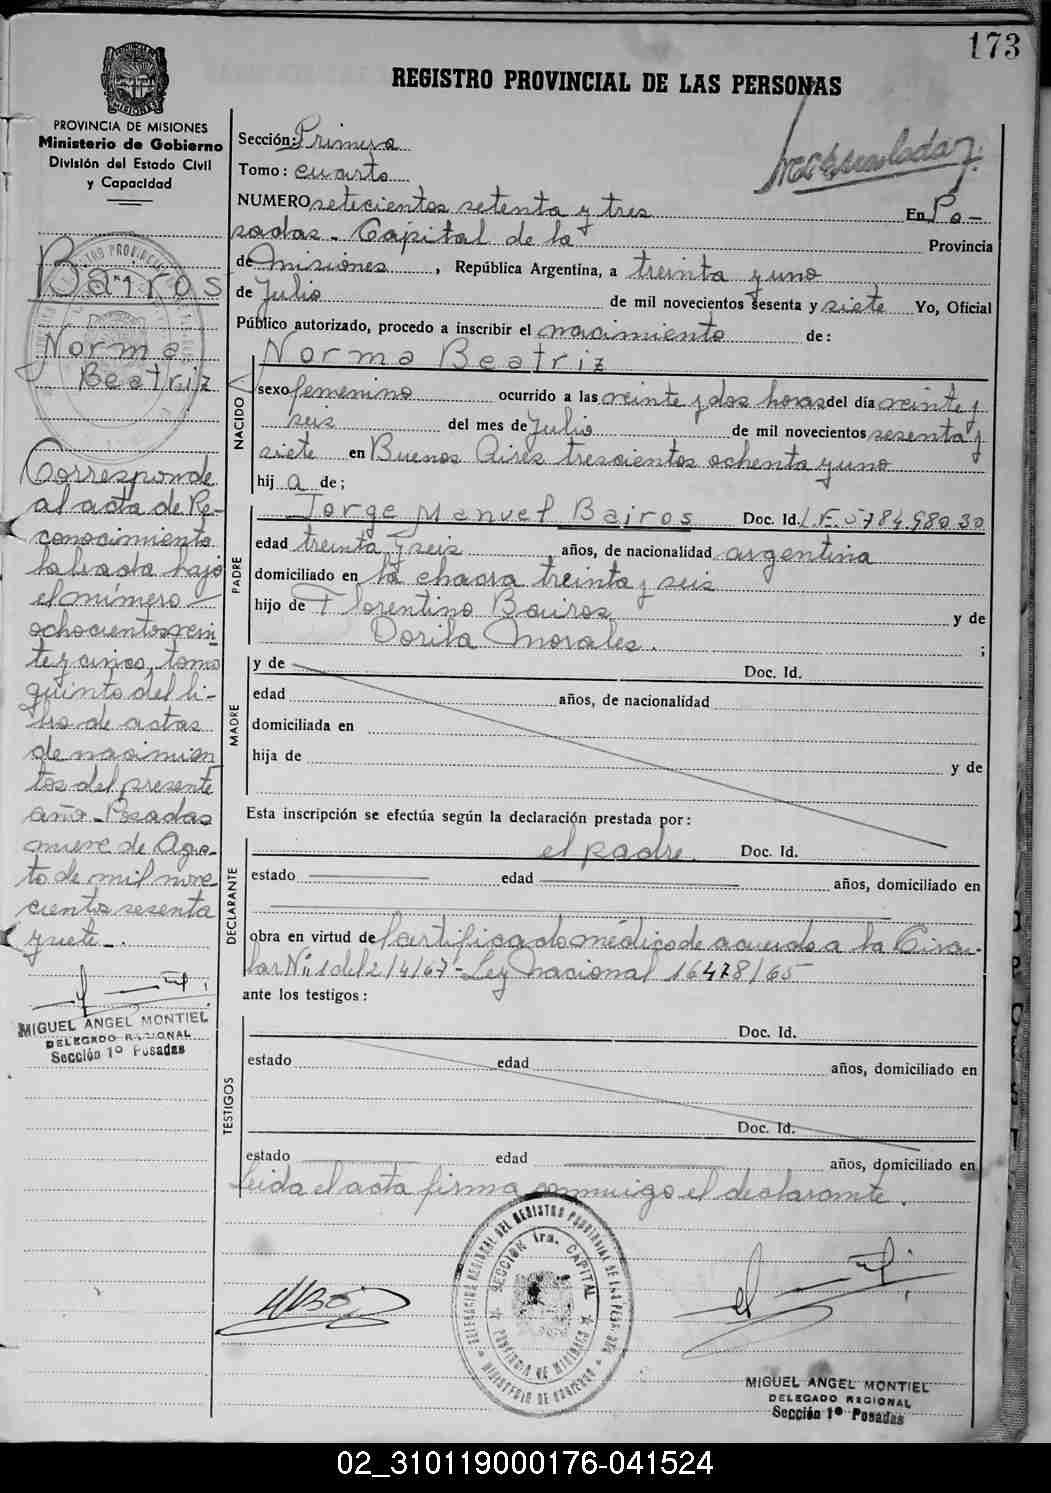 173
REGISTRO PROVINCIAL DE LAS PERSONAS
PROVINCIA DE MISIONES
Ministerio de Gobierno
División del Estado Civil
y Capacidad
Sección: Primera
Tomo: cuarto
NUMERO setecientos setenta y tres En Po-
sadas - Capital de la Provincia
de Misiones, República Argentina, a treinta y uno
de Julio de mil novecientos sesenta y siete Yo, Oficial
Público autorizado, procedo a inscribir el nacimiento de:
Norma Beatriz
NACIDO
sexo femenino ocurrido a las veinte y dos horas del día veinte y
seis del mes de Julio de mil novecientos sesenta y
siete en Buenos Aires trescientos ochenta y uno
hij a de;
PADRE
Jorge Manuel Bairos Doc. Id. L.E. 5784.980.30
edad treinta y seis años, de nacionalidad argentina
domiciliado en la chacra treinta y seis
hijo de Florentino Bairos y de
Dorila Morales. ;
MADRE
y de Doc. Id.
edad años, de nacionalidad
domiciliada en
hija de y de
Esta inscripción se efectúa según la declaración prestada por:
DECLARANTE
el padre. Doc. Id.
estado edad años, domiciliado en
obra en virtud de Certificado médico de acuerdo a la Circu-
lar Nº 1 del 2/4/67 - Ley Nacional 16478/65
ante los testigos:
TESTIGOS
Doc. Id.
estado edad años, domiciliado en
Doc. Id.
estado edad años, domiciliado en
Leida el acta firma conmigo el declarante.
Bairos
Norma
Beatriz
Corresponde
al acta de Re-
conocimiento
labrada bajo
el número
ochocientos vein-
te y cinco, tomo
quinto del li-
bro de actas
de nacimien
tos del presente
año - Posadas
nueve de Agos-
to de mil nove
cientos sesenta
y siete -.
MIGUEL ANGEL MONTIEL
DELEGADO REGIONAL
Sección 1º Posadas
DELEGACION REGIONAL DEL REGISTRO PROVINCIAL DE LAS PERSONAS
SECCION 1ra. CAPITAL
PROVINCIA DE MISIONES
MINISTERIO DE GOBIERNO
MIGUEL ANGEL MONTIEL
DELEGADO REGIONAL
Sección 1º Posadas
02_310119000176-041524